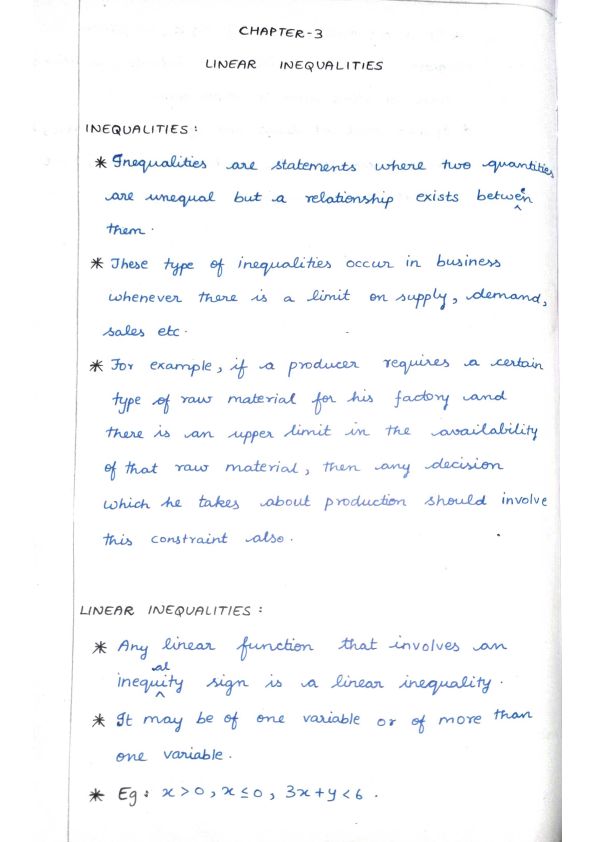 CHAPTER-3
LINEAR INEQUALITIES
INEQUALITIES :
* Inequalities are statements where two quantities
are unequal but a relationship exists between
them.
* These type of inequalities occur in business
whenever there is a limit on supply, demand,
sales etc.
* For example, if a producer requires a certain
type of raw material for his factory and
there is an upper limit in the availability
of that raw material, then any decision
which he takes about production should involve
this constraint also.
LINEAR INEQUALITIES :
* Any linear function that involves an
inequality sign is a linear inequality.
* It may be of one variable or of more than
one variable.
* Eg : x > 0, x ≤ 0, 3x + y < 6.